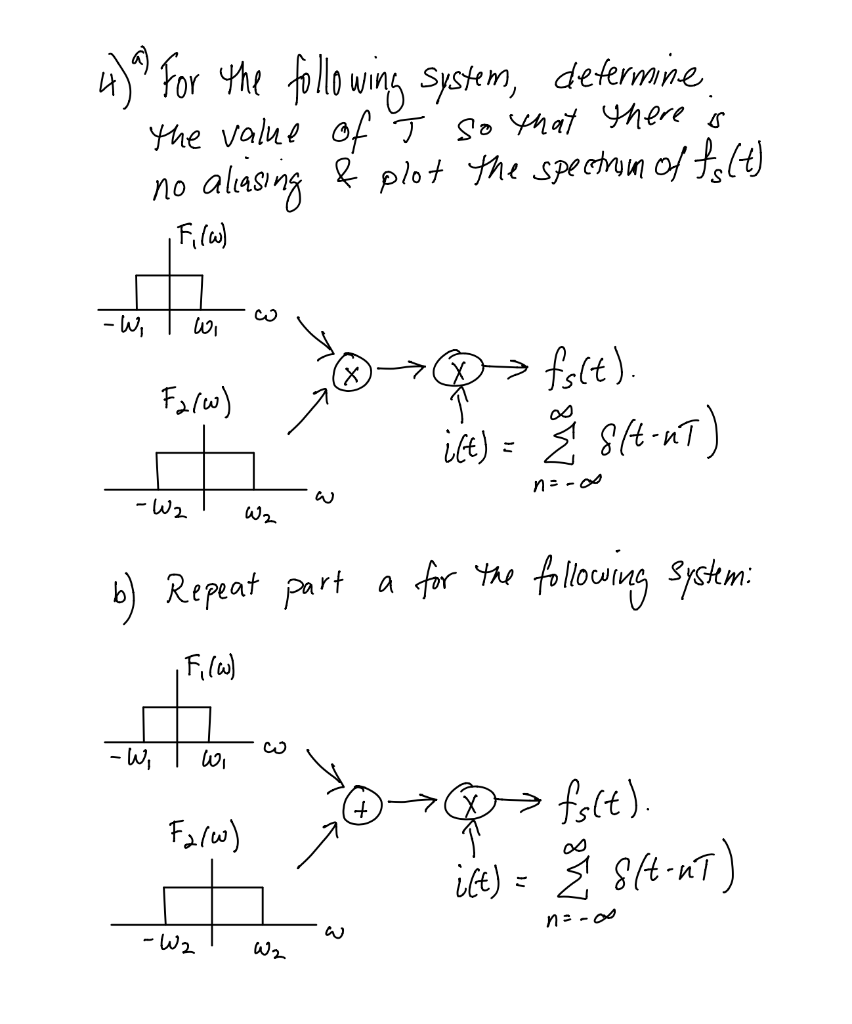 4) a) For the following system, determine
the value of T so that there is
no aliasing & plot the spectrum of fs(t)
F₁(ω)
-ω₁ ω₁ ω
x x fs(t).
F₂(ω)
i(t) = ∞ Σ n=-∞ δ(t-nT)
-ω₂ ω₂ ω
b) Repeat part a for the following system:
F₁(ω)
-ω₁ ω₁ ω
+ x fs(t).
F₂(ω)
i(t) = ∞ Σ n=-∞ δ(t-nT)
-ω₂ ω₂ ω